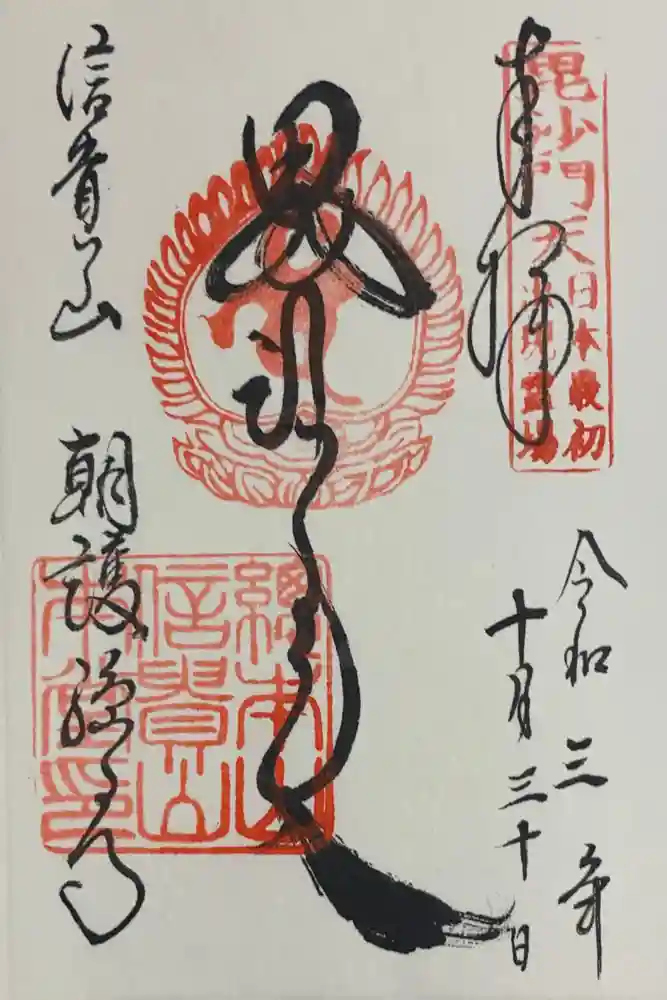 奉拝
毘沙門天
日本最初
出現霊場
令和三年
十月三十日
毘沙門天
信貴山
朝護孫子寺
総本山
信貴山